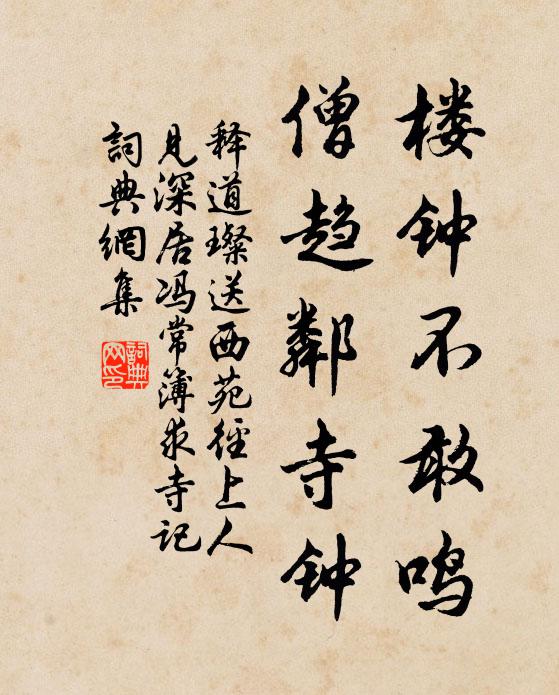 楼钟不敢鸣
僧趋鄰寺钟
释道璨送西苑径上人
见深居冯常簿求寺记
詞典網集
詞典网印